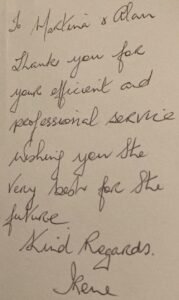 To Martina & Alan
Thank you for
your efficient and
professional service
wishing you the
very best for the
future.
Kind Regards.
Irene